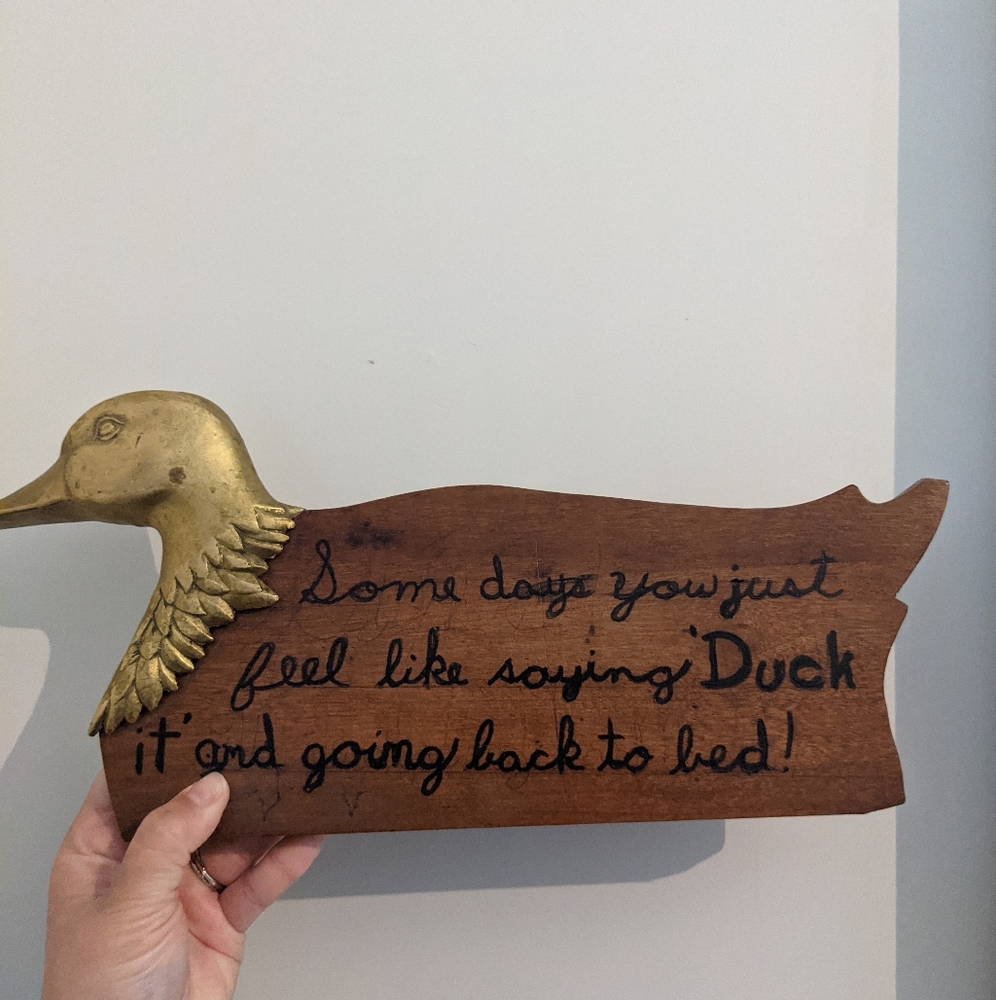 Some days you just
feel like saying 'Duck
it' and going back to bed!